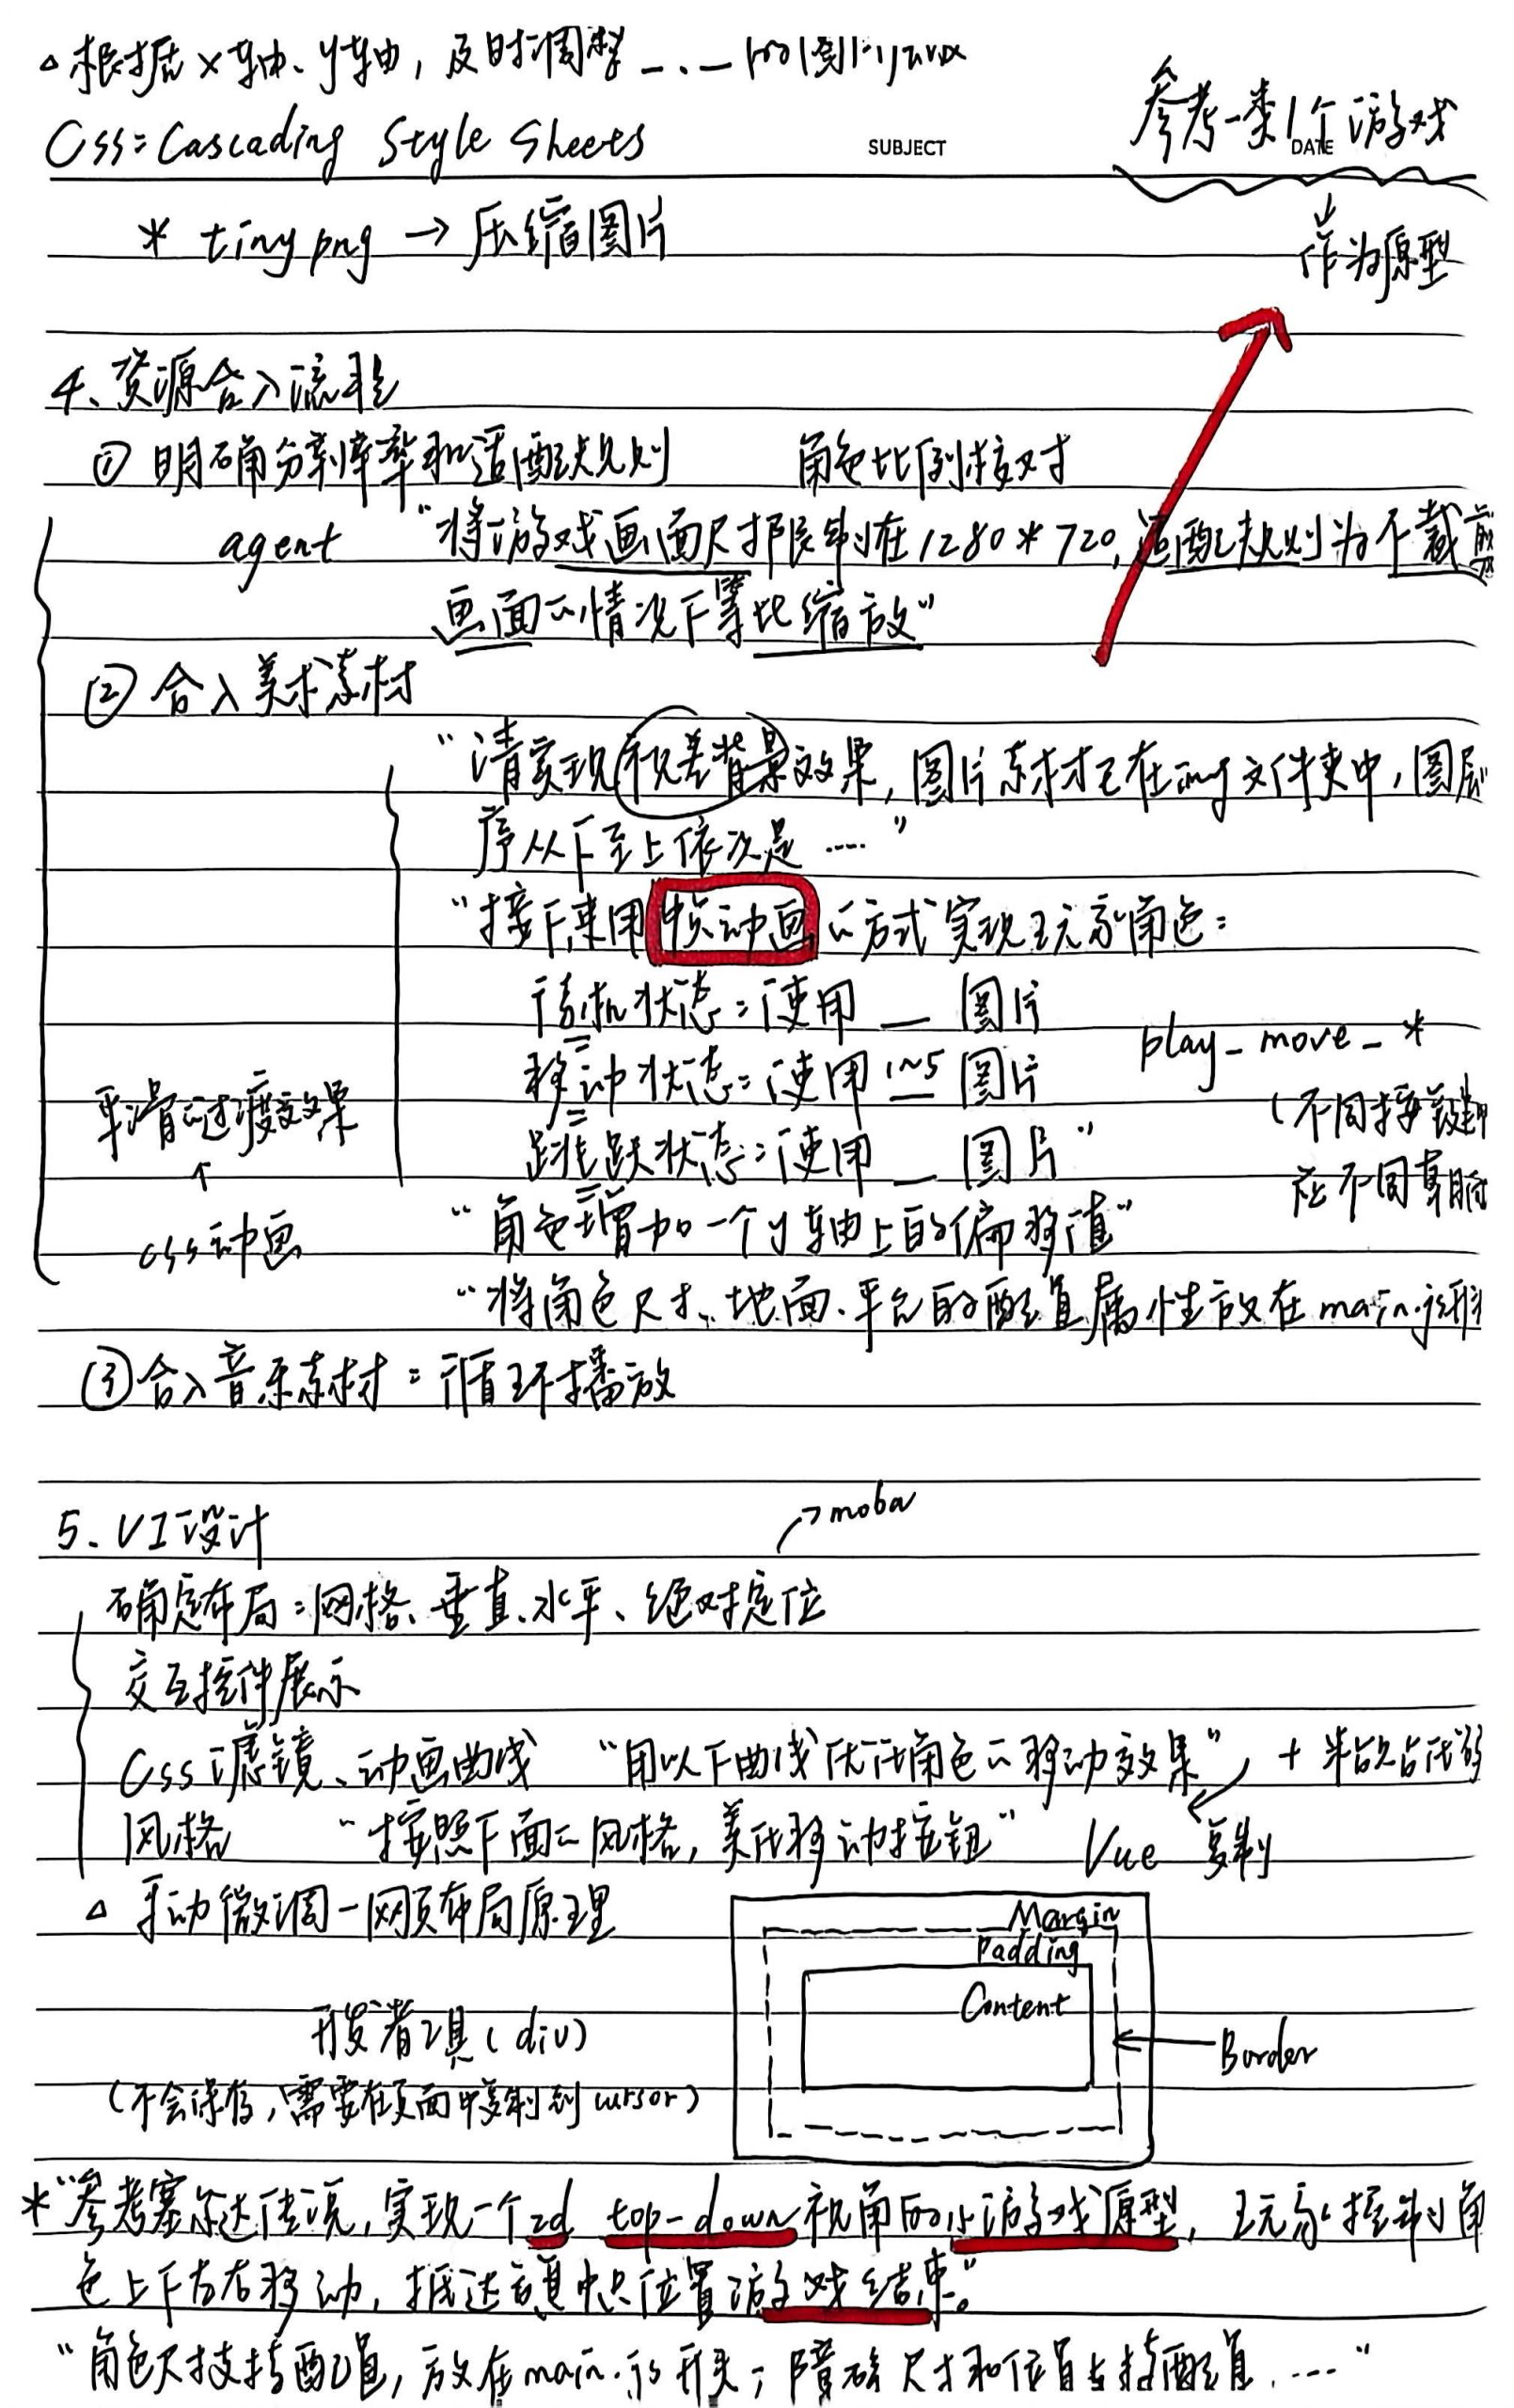 △根据x轴、y轴，及时调整
Css：Cascading Style Sheets
SUBJECT
DATE
参考一类/个游戏
↓
作为原型
* tinypng → 压缩图片
4、资源合入流程
① 明确分辨率和适配规则 角色比例核对
agent “将游戏画面尺寸限制在1280*720，适配规则为不裁剪
画面的情况下等比缩放”
② 合入美术素材
“请实现视差背景效果，图片素材已在img文件夹中，图层
序从下至上依次是……”
“接下来用帧动画的方式实现玩家角色：
待机状态：使用__图片
play_move_*
移动状态：使用1~5图片
平滑的过渡效果
（不同
跳跃状态：使用__图片”
↑
在不同
css动画
“角色增加一个y轴上的偏移值”
“将角色尺寸、地面、平台的配置属性放在main.js
③合入音乐素材：循环播放
5、UI设计
→moba
确定布局：网格、垂直、水平、绝对定位
交互控件展示
Css滤镜、动画曲线 “用以下曲线优化角色的移动效果” + 粘贴代码
风格 “按照下面的风格，美化移动按钮” Vue 复制
△ 手动微调—网页布局原理
Margin
Padding
Content
Border
开发者工具（div）
（不会保存，需要在页面中复制到cursor）
*“参考塞尔达传说，实现一个2d top-down视角的小游戏原型，玩家控制角
色上下左右移动，抵达终点位置游戏结束。”
“角色尺寸支持配置，放在main.js开头；障碍尺寸和位置支持配置……”